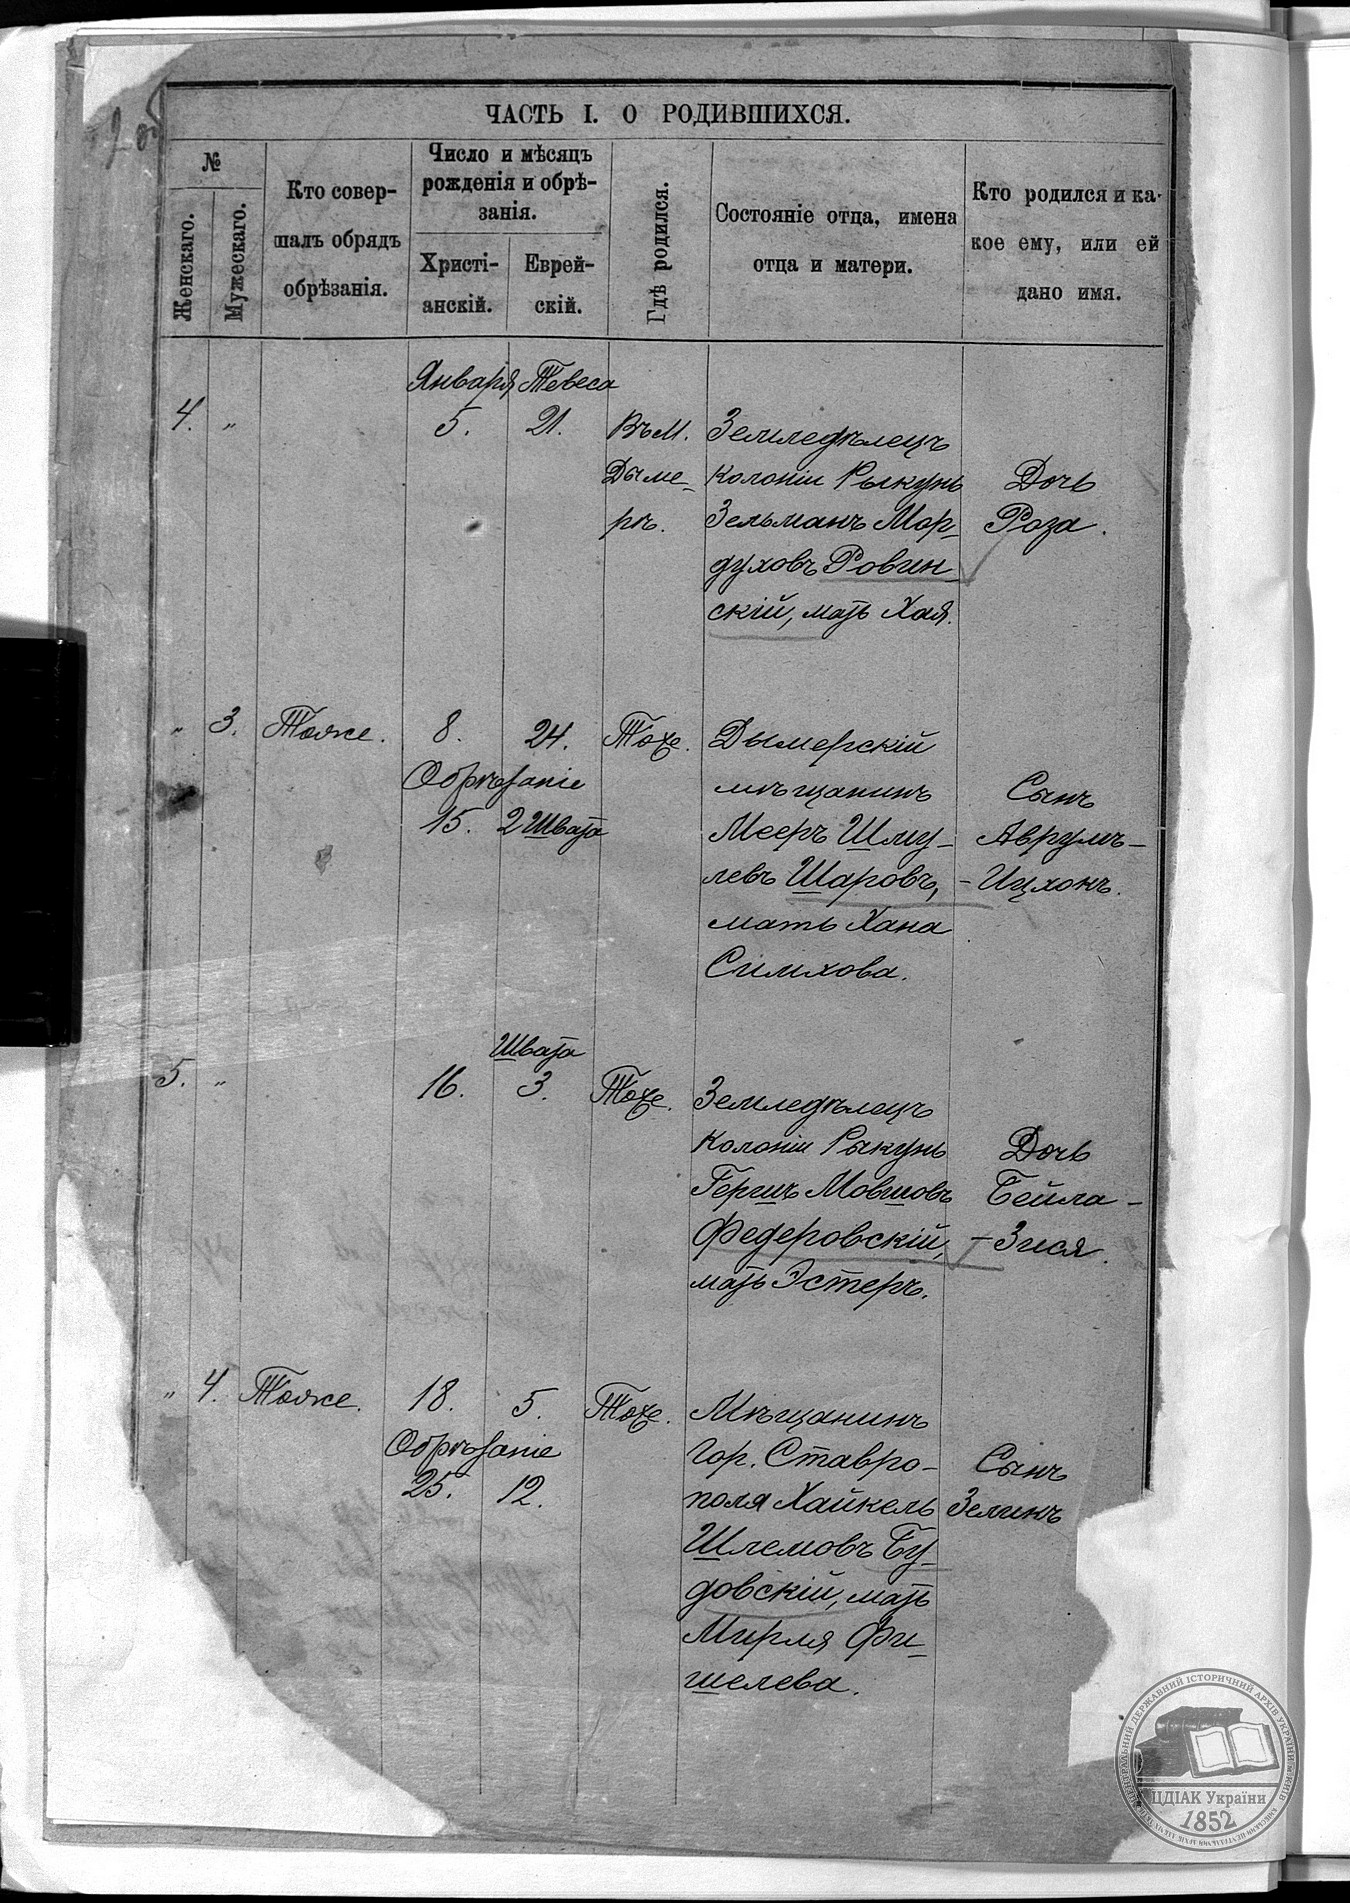 2 об
ЧАСТЬ I. О РОДИВШИХСЯ.
№
Женскаго.
Мужескаго.
Кто совер-
шалъ обрядъ
обрѣзанія.
Число и мѣсяцъ
рожденія и обрѣ-
занія.
Христі-
анскій.
Еврей-
скій.
Гдѣ родился.
Состояніе отца, имена
отца и матери.
Кто родился и ка-
кое ему, или ей
дано имя.
Января Тевеса
4. " 5. 21. Въ м.
Дыме-
рѣ.
Земледѣлецъ
колоніи Рыкунь
Зельманъ Мор-
духовъ Ровин-
скій, мать Хая.
Дочь
Роза.
" 3. Тоже. 8. 24. Тоже.
Обрѣзаніе
15. 2 Швата
Дымерскій
мѣщанинъ
Мееръ Шму-
левъ Шаровъ,
мать Хана
Симхова.
Сынъ
Аврумъ-
-Ицхокъ.
Швата
5. " 16. 3. Тоже.
Земледѣлецъ
колоніи Рыкунь
Гершъ Мовшовъ
Федеровскій,
мать Эстеръ.
Дочь
Бейла-
-Зися.
" 4. Тоже. 18. 5. Тоже.
Обрѣзаніе
25. 12.
Мѣщанинъ
гор. Ставро-
поля Хайкель
Шлемовъ Бу-
довскій, мать
Мирля Фи-
шелева.
Сынъ
Зеликъ
ЦЕНТРАЛЬНИЙ ДЕРЖАВНИЙ ІСТОРИЧНИЙ АРХІВ УКРАЇНИ, М. КИЇВ
ЦДІАК України
1852